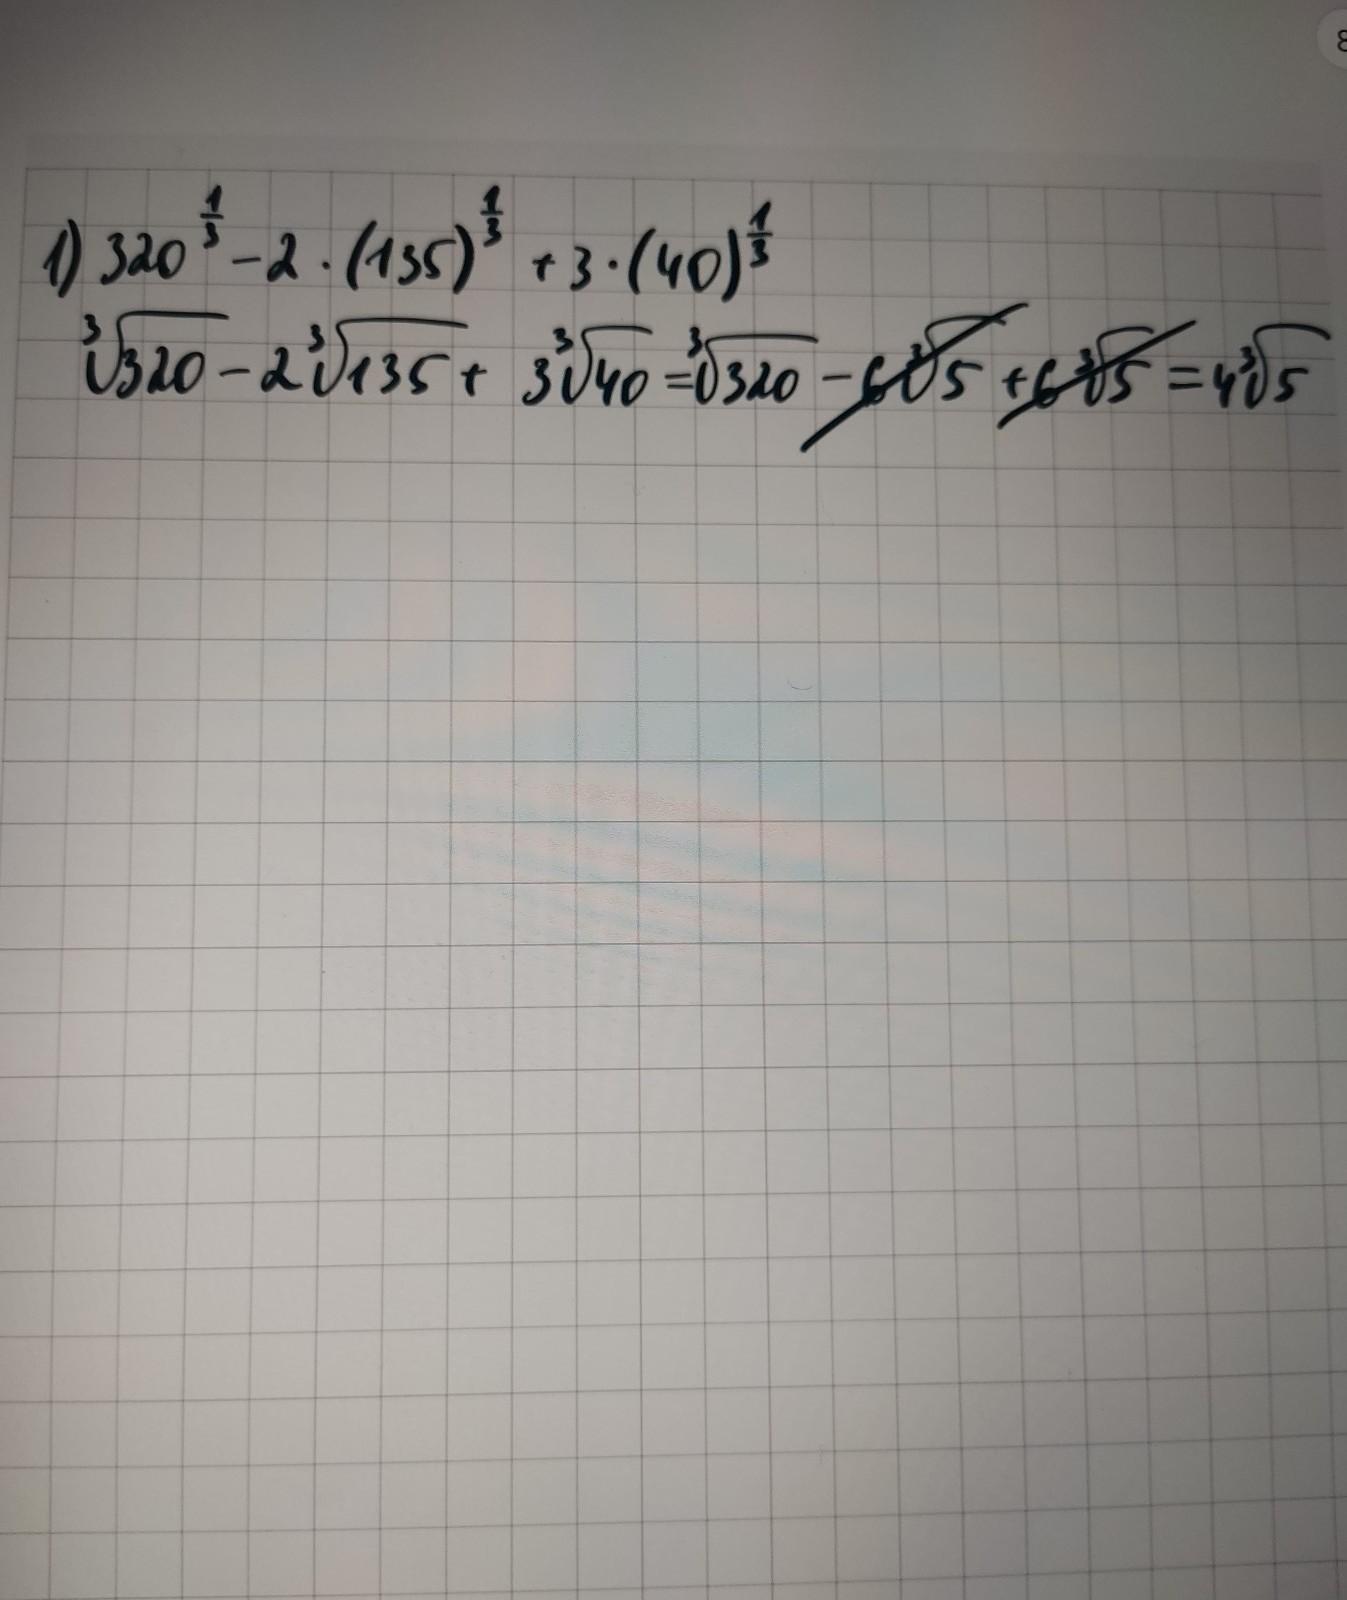 8
1) 320^(1/3) - 2 · (135)^(1/3) + 3 · (40)^(1/3)
∛320 - 2∛135 + 3∛40 = ∛320 - 6∛5 + 6∛5 = 4∛5